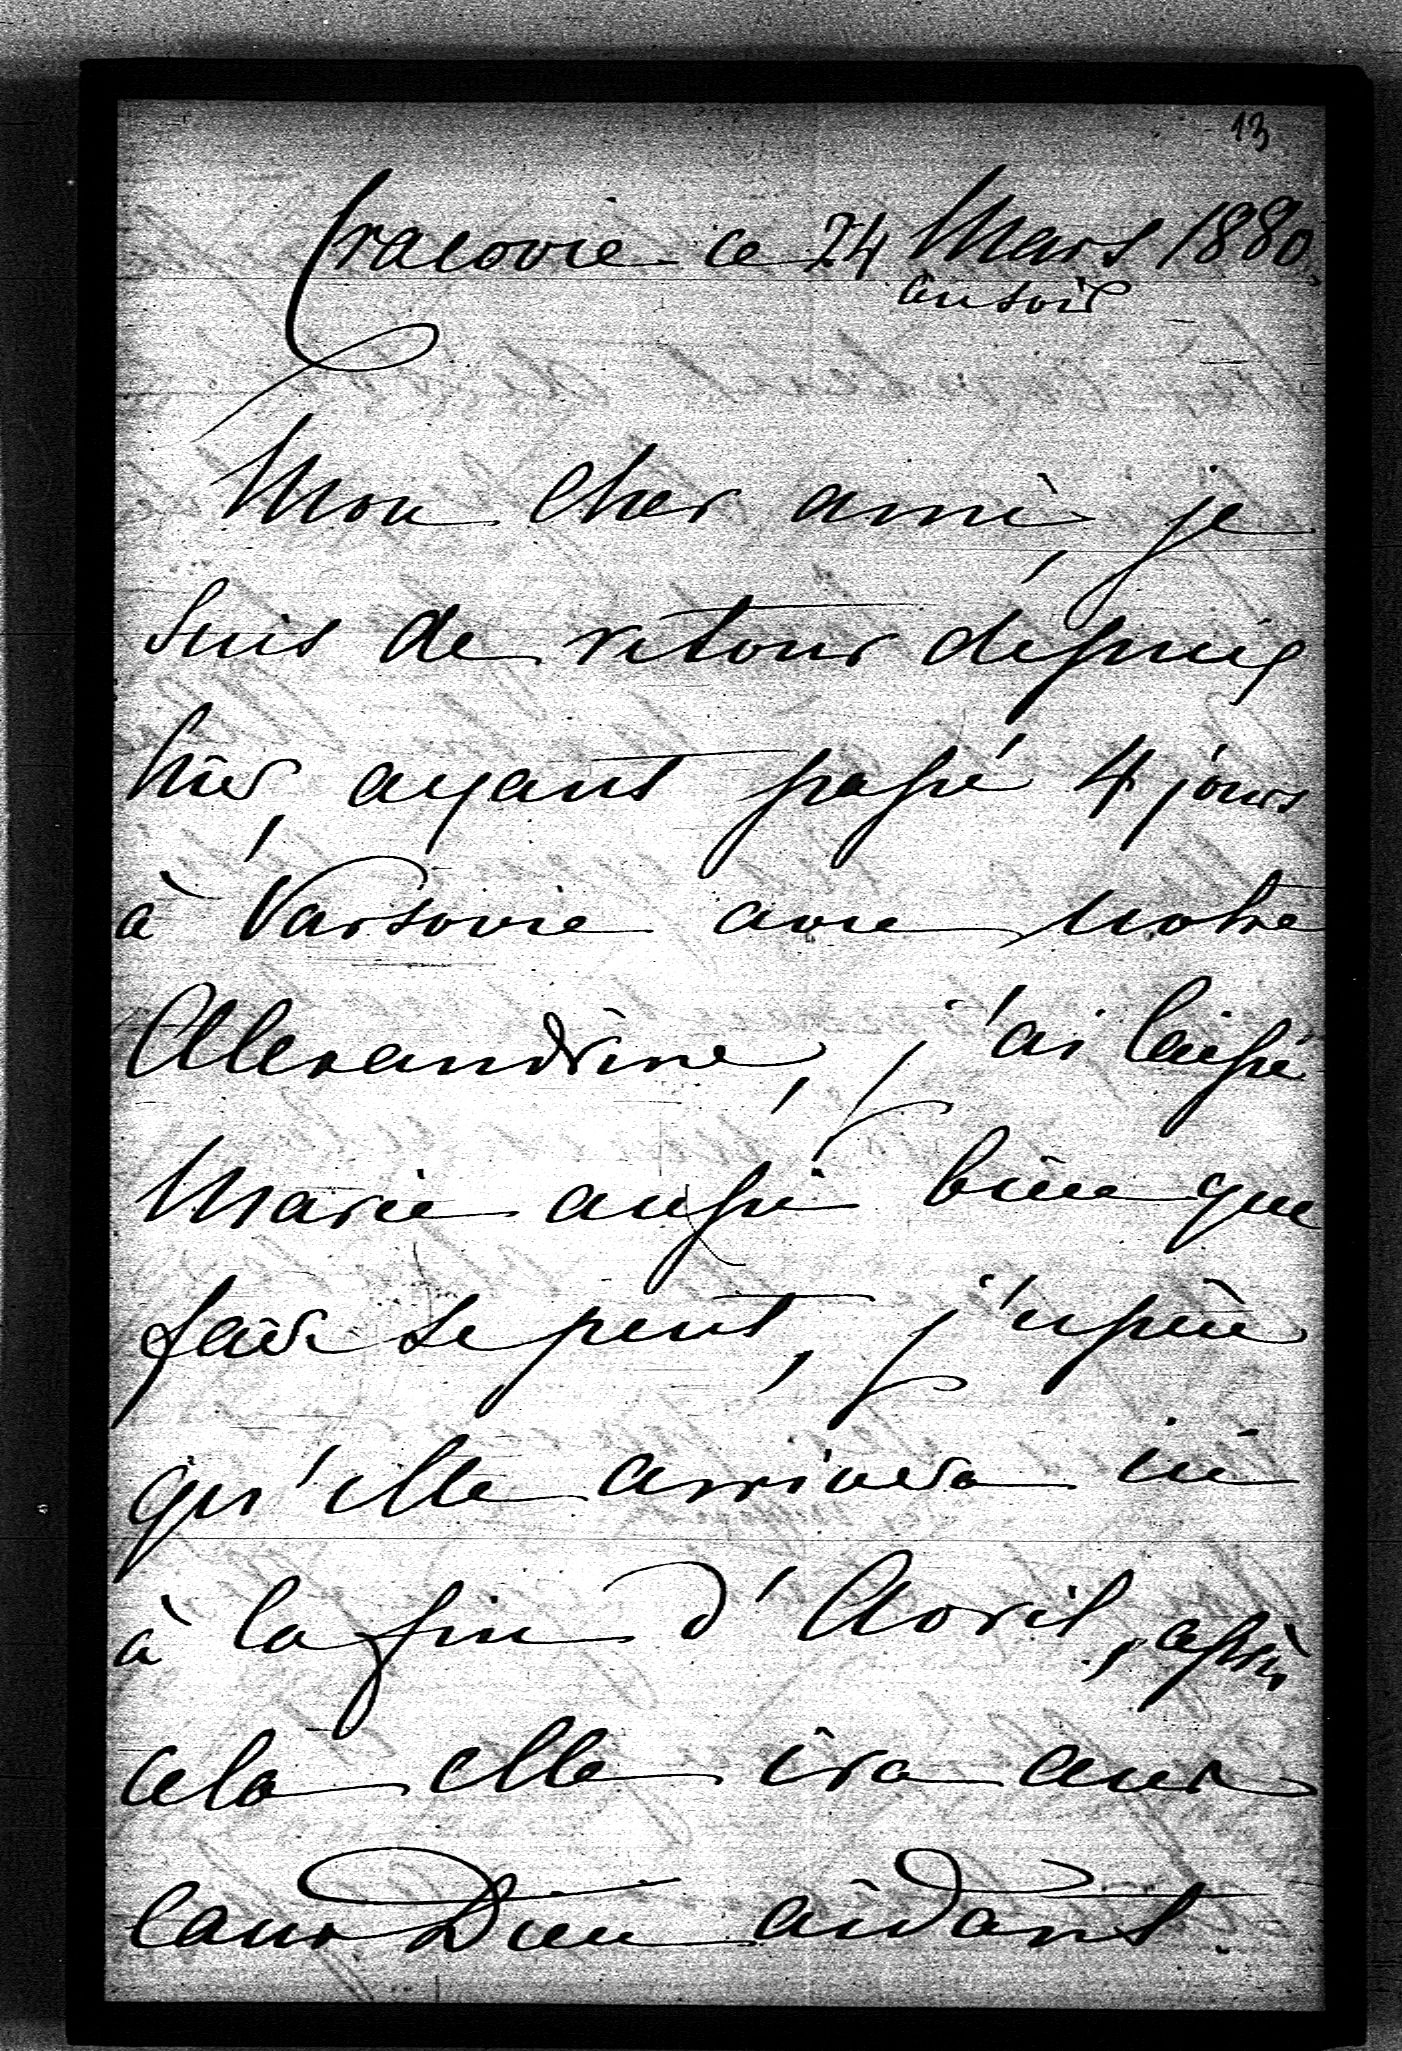 13
Cracovie ce 24 Mars 1880,
au soir
Mon cher ami, je
suis de retour depuis
hier, ayant passé 4 jours
à Varsovie avec notre
Alexandrine, j'ai laissé
Marie aussi bien que
faire se peut, j'espère
qu'elle arrivera ici
à la fin d'Avril, après
cela elle ira aux
eaux Dieu aidant.